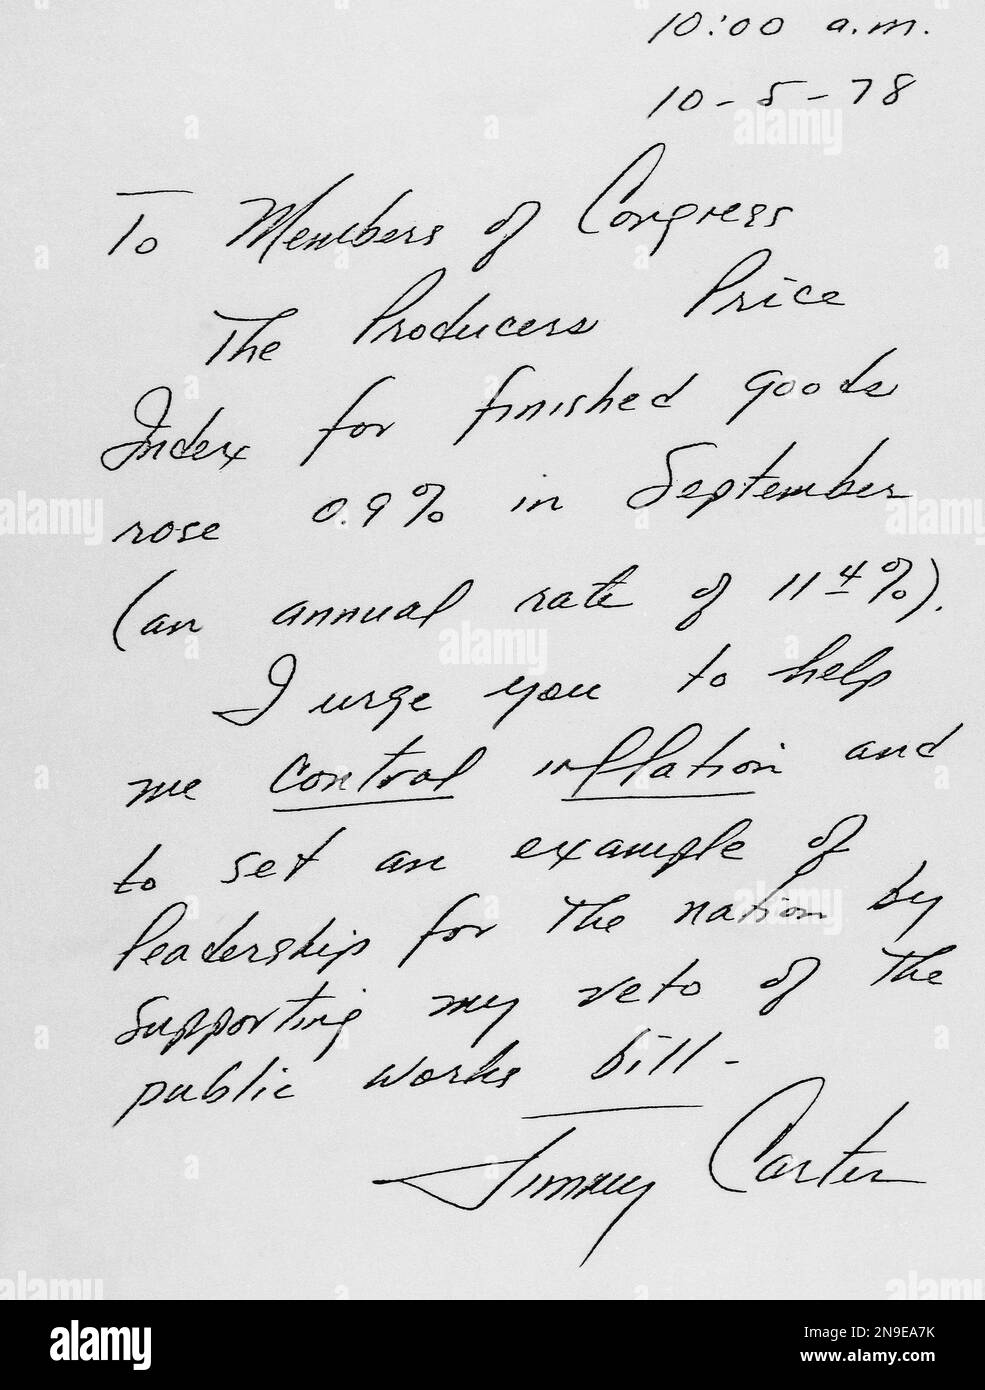 10:00 a.m.
10-5-78
To Members of Congress
The Producers Price
Index for finished goods
rose 0.9% in September
(an annual rate of 11.4%).
I urge you to help
me control inflation and
to set an example of
leadership for the nation by
supporting my veto of the
public works bill-
Jimmy Carter
alamy
alamy
Image ID: 2N9EA7K
www.alamy.com